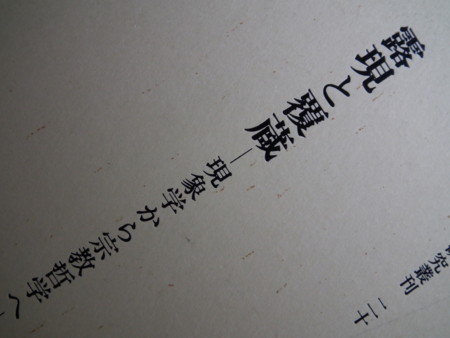 露現と覆蔵―現象学から宗教哲学へ
究叢刊 二十